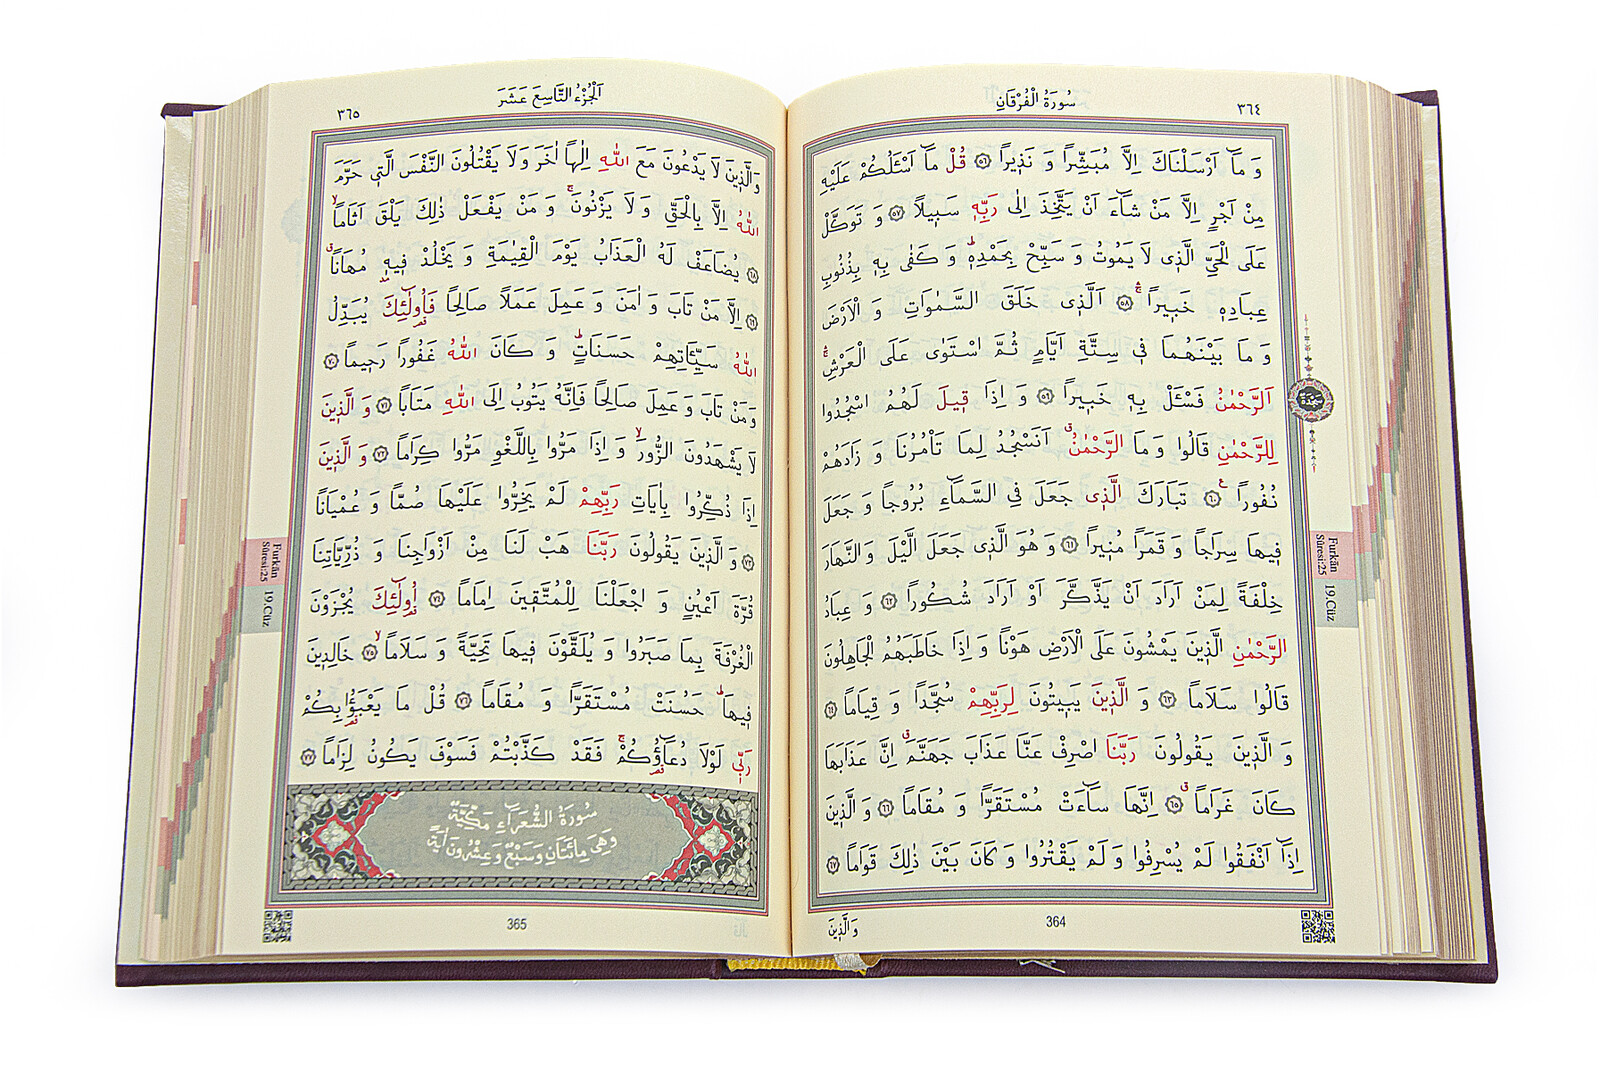 ٣٦٤
سُورَةُ الْفُرْقَانِ
وَمَٓا اَرْسَلْنَاكَ اِلَّا مُبَشِّراً وَنَذٖيراً ﴿٥٦﴾ قُلْ مَٓا اَسْـَٔلُكُمْ عَلَيْهِ
مِنْ اَجْرٍ اِلَّا مَنْ شَٓاءَ اَنْ يَتَّخِذَ اِلٰى رَبِّهٖ سَبٖيلاً ﴿٥٧﴾ وَتَوَكَّلْ
عَلَى الْحَيِّ الَّذٖى لَا يَمُوتُ وَسَبِّحْ بِحَمْدِهٖؕ وَكَفٰى بِهٖ بِذُنُوبِ
عِبَادِهٖ خَبٖيراًۚ ﴿٥٨﴾ اَلَّذٖى خَلَقَ السَّمٰوَاتِ وَالْاَرْضَ
وَمَا بَيْنَهُمَا فٖى سِتَّةِ اَيَّامٍ ثُمَّ اسْتَوٰى عَلَى الْعَرْشِۚ
اَلرَّحْمٰنُ فَسْـَٔلْ بِهٖ خَبٖيراً ﴿٥٩﴾ وَاِذَا قٖيلَ لَهُمُ اسْجُدُوا
لِلرَّحْمٰنِ قَالُوا وَمَا الرَّحْمٰنُۗ اَنَسْجُدُ لِمَا تَأْمُرُنَا وَزَادَهُمْ
نُفُوراً ﴿٦٠﴾ تَبَارَكَ الَّذٖى جَعَلَ فِى السَّمَٓاءِ بُرُوجاً وَجَعَلَ
فٖيهَا سِرَاجاً وَقَمَراً مُنٖيراً ﴿٦١﴾ وَهُوَ الَّذٖى جَعَلَ الَّيْلَ وَالنَّهَارَ
خِلْفَةً لِمَنْ اَرَادَ اَنْ يَذَّكَّرَ اَوْ اَرَادَ شُكُوراً ﴿٦٢﴾ وَعِبَادُ
الرَّحْمٰنِ الَّذٖينَ يَمْشُونَ عَلَى الْاَرْضِ هَوْناً وَاِذَا خَاطَبَهُمُ الْجَاهِلُونَ
قَالُوا سَلَاماً ﴿٦٣﴾ وَالَّذٖينَ يَبٖيتُونَ لِرَبِّهِمْ سُجَّداً وَقِيَاماً ﴿٦٤﴾
وَالَّذٖينَ يَقُولُونَ رَبَّنَا اصْرِفْ عَنَّا عَذَابَ جَهَنَّمَۗ اِنَّ عَذَابَهَا
كَانَ غَرَاماًۗ ﴿٦٥﴾ اِنَّهَا سَٓاءَتْ مُسْتَقَرًّا وَمُقَاماً ﴿٦٦﴾ وَالَّذٖينَ
اِذَٓا اَنْفَقُوا لَمْ يُسْرِفُوا وَلَمْ يَقْتُرُوا وَكَانَ بَيْنَ ذٰلِكَ قَوَاماً ﴿٦٧﴾
وَالَّذٖينَ
364
Furkân
Sûresi:25
19.Cüz
اَلْجُزْءُ التَّاسِعَ عَشَرَ
٣٦٥
وَالَّذٖينَ لَا يَدْعُونَ مَعَ اللّٰهِ اِلٰهاً اٰخَرَ وَلَا يَقْتُلُونَ النَّفْسَ الَّتٖى حَرَّمَ
اللّٰهُ اِلَّا بِالْحَقِّ وَلَا يَزْنُونَۚ وَمَنْ يَفْعَلْ ذٰلِكَ يَلْقَ اَثَاماًۙ
﴿٦٨﴾ يُضَاعَفْ لَهُ الْعَذَابُ يَوْمَ الْقِيٰمَةِ وَيَخْلُدْ فٖيهٖ مُهَاناًۗ
﴿٦٩﴾ اِلَّا مَنْ تَابَ وَاٰمَنَ وَعَمِلَ عَمَلاً صَالِحاً فَاُو۬لٰٓئِكَ يُبَدِّلُ
اللّٰهُ سَيِّـَٔاتِهِمْ حَسَنَاتٍؕ وَكَانَ اللّٰهُ غَفُوراً رَحٖيماً ﴿٧٠﴾
وَمَنْ تَابَ وَعَمِلَ صَالِحاً فَاِنَّهُ يَتُوبُ اِلَى اللّٰهِ مَتَاباً ﴿٧١﴾ وَالَّذٖينَ
لَا يَشْهَدُونَ الزُّورَۙ وَاِذَا مَرُّوا بِاللَّغْوِ مَرُّوا كِرَاماً ﴿٧٢﴾ وَالَّذٖينَ
اِذَا ذُكِّرُوا بِاٰيَاتِ رَبِّهِمْ لَمْ يَخِرُّوا عَلَيْهَا صُمًّا وَعُمْيَاناً
﴿٧٣﴾ وَالَّذٖينَ يَقُولُونَ رَبَّنَا هَبْ لَنَا مِنْ اَزْوَاجِنَا وَذُرِّيَّاتِنَا
قُرَّةَ اَعْيُنٍ وَاجْعَلْنَا لِلْمُتَّقٖينَ اِمَاماً ﴿٧٤﴾ اُو۬لٰٓئِكَ يُجْزَوْنَ
الْغُرْفَةَ بِمَا صَبَرُوا وَيُلَقَّوْنَ فٖيهَا تَحِيَّةً وَسَلَاماًۙ ﴿٧٥﴾ خَالِدٖينَ
فٖيهَاؕ حَسُنَتْ مُسْتَقَرًّا وَمُقَاماً ﴿٧٦﴾ قُلْ مَا يَعْبَؤُ۬ا بِكُمْ
رَبّٖى لَوْلَا دُعَٓاؤُ۬كُمْۚ فَقَدْ كَذَّبْتُمْ فَسَوْفَ يَكُونُ لِزَاماً ﴿٧٧﴾
سُورَةُ الشُّعَرَاءِ مَكِّيَّةٌ
وَهِىَ مِائَتَانِ وَسَبْعٌ وَعِشْرُونَ اٰيَةً
365
Furkân
Sûresi:25
19.Cüz